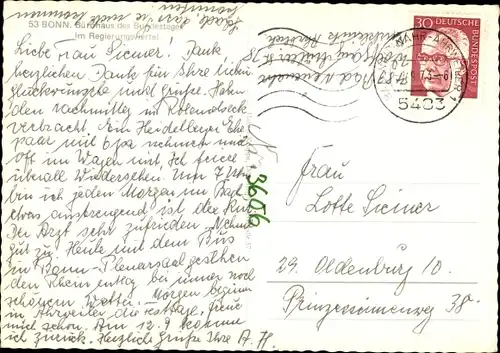 53 BONN. Bürohaus des Bundestages
im Regierungsviertel
Liebe Frau Sieiner! Dank
herzlichen Dank für Ihre lieben
Glückwünsche und Grüße. Haben
den Nachmittag in Rolandseck
verbracht. Ein Heidelberger Ehe
paar mit Opa nehmen uns
oft im Wagen mit. Ich feiere
überall Wiedersehen. Um 7 Uhr
bin ich jeden Morgen im Bad.
Etwas anstrengend ist die Kur.
Der Arzt sehr zufrieden. Nehme
gut zu. Heute mit dem Bus
in Bonn - Plenarsaal gesehen
den Rhein entlang bei immer noch
schönem Wetter. - Morgen beginnen
in Ahrweiler die Festtage. Freue
mich schon. Am 12.9 komme
ich zurück. Herzliche Grüße Ihre A. H.
Schade dass sie nicht
kommen
Bad Neuenahr
30 DEUTSCHE BUNDESPOST
5483
3606
Frau
Lotte Sieiner
29. Oldenburg 10.
Prinzessinnenweg 38.